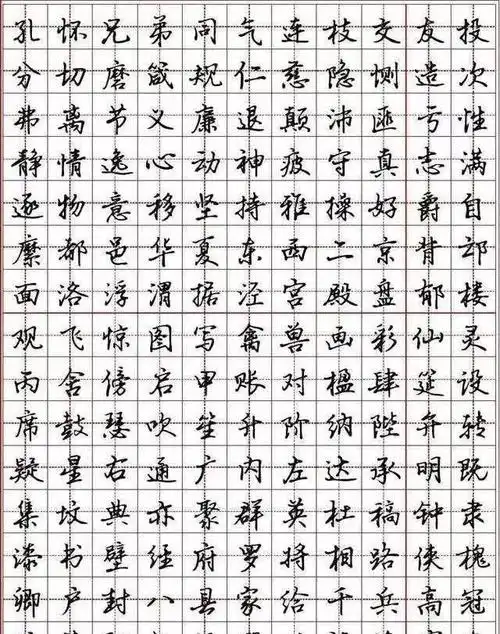 孔怀兄弟同气连枝交友投
分切磨箴规仁慈隐恻造次
弗离节义廉退颠沛匪亏性
静情逸心动神疲守真志满
逐物意移坚持雅操好爵自
縻都邑华夏东西二京背邙
面洛浮渭据泾宫殿盘郁楼
观飞惊图写禽兽画彩仙灵
丙舍傍启甲账对楹肆筵设
席鼓瑟吹笙升阶纳陛弁转
疑星右通广内左达承明既
集坟典亦聚群英杜稿钟隶
漆书壁经府罗将相路侠槐
卿户封八县家给千兵高冠